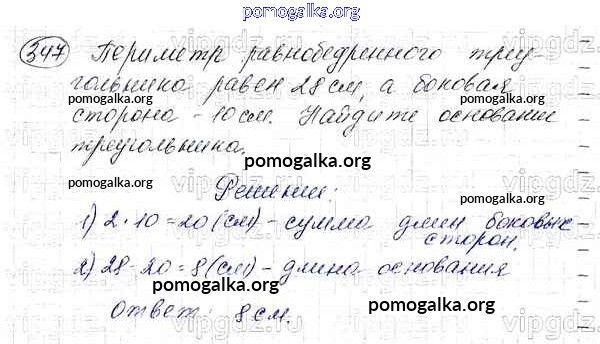 pomogalka.org
347 Периметр равнобедренного треу-
гольника равен 28 см, а боковая
pomogalka.org pomogalka.org
сторона - 10 см. Найдите основание
треугольника.
pomogalka.org
Решение:
1) 2 · 10 = 20 (см) - сумма длин боковых
сторон.
pomogalka.org pomogalka.org
2) 28 - 20 = 8 (см) - длина основания
pomogalka.org
Ответ: 8 см.
pomogalka.org